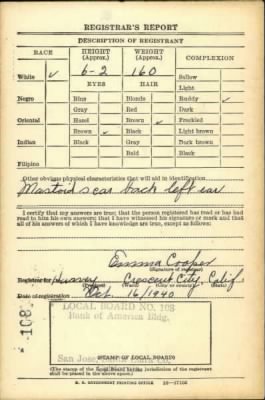 REGISTRAR'S REPORT
DESCRIPTION OF REGISTRANT
RACE HEIGHT (Approx.) WEIGHT (Approx.) COMPLEXION
White ✓ 6-2 160 Sallow
EYES HAIR Light
Negro Blue Blonde Ruddy ✓
Gray Red Dark
Oriental Hazel Brown ✓ Freckled
Brown ✓ Black Light brown
Indian Black Gray Dark brown
Bald Black
Filipino
Other obvious physical characteristics that will aid in identification
Mastoid scar back left ear
I certify that my answers are true; that the person registered has read or has had
read to him his own answers; that I have witnessed his signature or mark and that
all of his answers of which I have knowledge are true, except as follows:
Emma Cooper
(Signature of registrar)
Registrar for Crescent City, Calif
(Precinct) (Ward) (City or county) (State)
Date of registration Oct 16/1940
LOCAL BOARD NO. 108
Bank of America Bldg.
108
San Jose, Santa Clara Co.
(STAMP OF LOCAL BOARD)
(The stamp of the Local Board having jurisdiction of the registrant
shall be placed in the above space.)
U. S. GOVERNMENT PRINTING OFFICE 16-17105